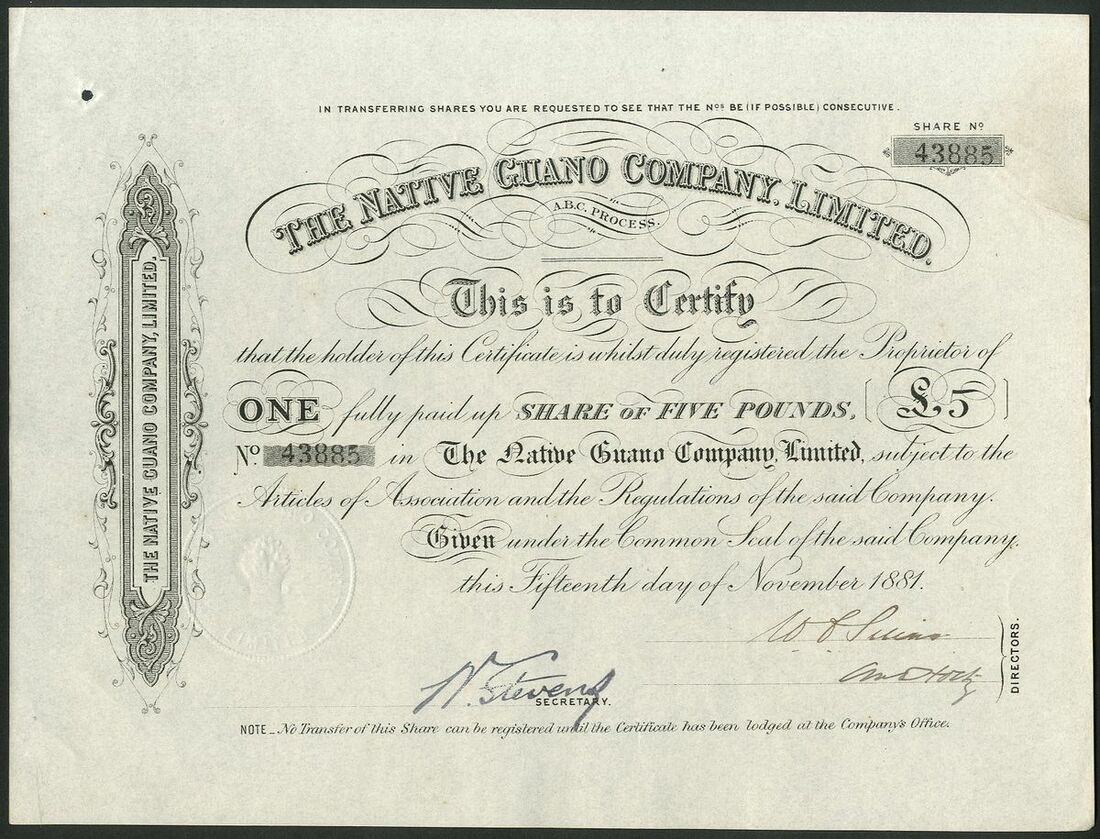 IN TRANSFERRING SHARES YOU ARE REQUESTED TO SEE THAT THE Nos BE (IF POSSIBLE) CONSECUTIVE.
SHARE No
43885
THE NATIVE GUANO COMPANY, LIMITED.
A.B.C. PROCESS.
This is to Certify
that the holder of this Certificate is whilst duly registered the Proprietor of
ONE fully paid up SHARE OF FIVE POUNDS, £5
No. 43885 in The Native Guano Company, Limited, subject to the
Articles of Association and the Regulations of the said Company.
Given under the Common Seal of the said Company,
this Fifteenth day of November 1881.
DIRECTORS.
N. Stevens
SECRETARY.
NOTE _ No Transfer of this Share can be registered until the Certificate has been lodged at the Company's Office.
THE NATIVE GUANO COMPANY, LIMITED.